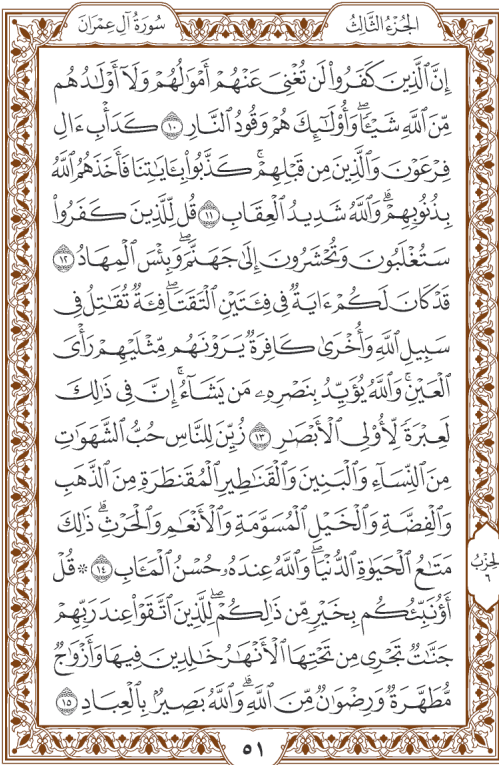 سُورَةُ آلِ عِمْرَانَ
الجُزْءُ الثَّالِثُ
إِنَّ ٱلَّذِينَ كَفَرُوا۟ لَن تُغْنِىَ عَنْهُمْ أَمْوَٰلُهُمْ وَلَآ أَوْلَـٰدُهُم
مِّنَ ٱللَّهِ شَيْـًٔا ۖ وَأُو۟لَـٰٓئِكَ هُمْ وَقُودُ ٱلنَّارِ ١٠ كَدَأْبِ ءَالِ
فِرْعَوْنَ وَٱلَّذِينَ مِن قَبْلِهِمْ ۚ كَذَّبُوا۟ بِـَٔايَـٰتِنَا فَأَخَذَهُمُ ٱللَّهُ
بِذُنُوبِهِمْ ۗ وَٱللَّهُ شَدِيدُ ٱلْعِقَابِ ١١ قُل لِّلَّذِينَ كَفَرُوا۟
سَتُغْلَبُونَ وَتُحْشَرُونَ إِلَىٰ جَهَنَّمَ ۚ وَبِئْسَ ٱلْمِهَادُ ١٢
قَدْ كَانَ لَكُمْ ءَايَةٌ فِى فِئَتَيْنِ ٱلْتَقَتَا ۖ فِئَةٌ تُقَـٰتِلُ فِى
سَبِيلِ ٱللَّهِ وَأُخْرَىٰ كَافِرَةٌ يَرَوْنَهُم مِّثْلَيْهِمْ رَأْىَ
ٱلْعَيْنِ ۚ وَٱللَّهُ يُؤَيِّدُ بِنَصْرِهِۦ مَن يَشَآءُ ۗ إِنَّ فِى ذَٰلِكَ
لَعِبْرَةً لِّأُو۟لِى ٱلْأَبْصَـٰرِ ١٣ زُيِّنَ لِلنَّاسِ حُبُّ ٱلشَّهَوَٰتِ
مِنَ ٱلنِّسَآءِ وَٱلْبَنِينَ وَٱلْقَنَـٰطِيرِ ٱلْمُقَنطَرَةِ مِنَ ٱلذَّهَبِ
وَٱلْفِضَّةِ وَٱلْخَيْلِ ٱلْمُسَوَّمَةِ وَٱلْأَنْعَـٰمِ وَٱلْحَرْثِ ۗ ذَٰلِكَ
مَتَـٰعُ ٱلْحَيَوٰةِ ٱلدُّنْيَا ۖ وَٱللَّهُ عِندَهُۥ حُسْنُ ٱلْمَـَٔابِ ١٤ ۞ قُلْ
أَؤُنَبِّئُكُم بِخَيْرٍ مِّن ذَٰلِكُمْ ۚ لِلَّذِينَ ٱتَّقَوْا۟ عِندَ رَبِّهِمْ
جَنَّـٰتٌ تَجْرِى مِن تَحْتِهَا ٱلْأَنْهَـٰرُ خَـٰلِدِينَ فِيهَا وَأَزْوَٰجٌ
مُّطَهَّرَةٌ وَرِضْوَٰنٌ مِّنَ ٱللَّهِ ۗ وَٱللَّهُ بَصِيرٌۢ بِٱلْعِبَادِ ١٥
الحِزْبُ
٦
٥١